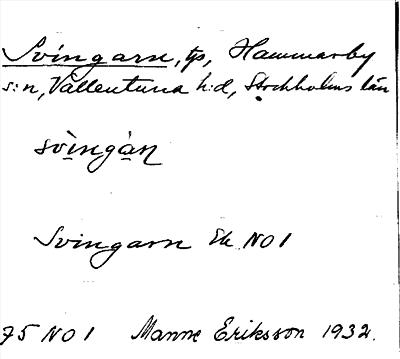 Svingarn, tp, Hammarby
s:n, Vallentuna h:d, Stockholms län
svìngàn
Svingarn Ek NO 1
75 NO 1 Manne Eriksson 1932.